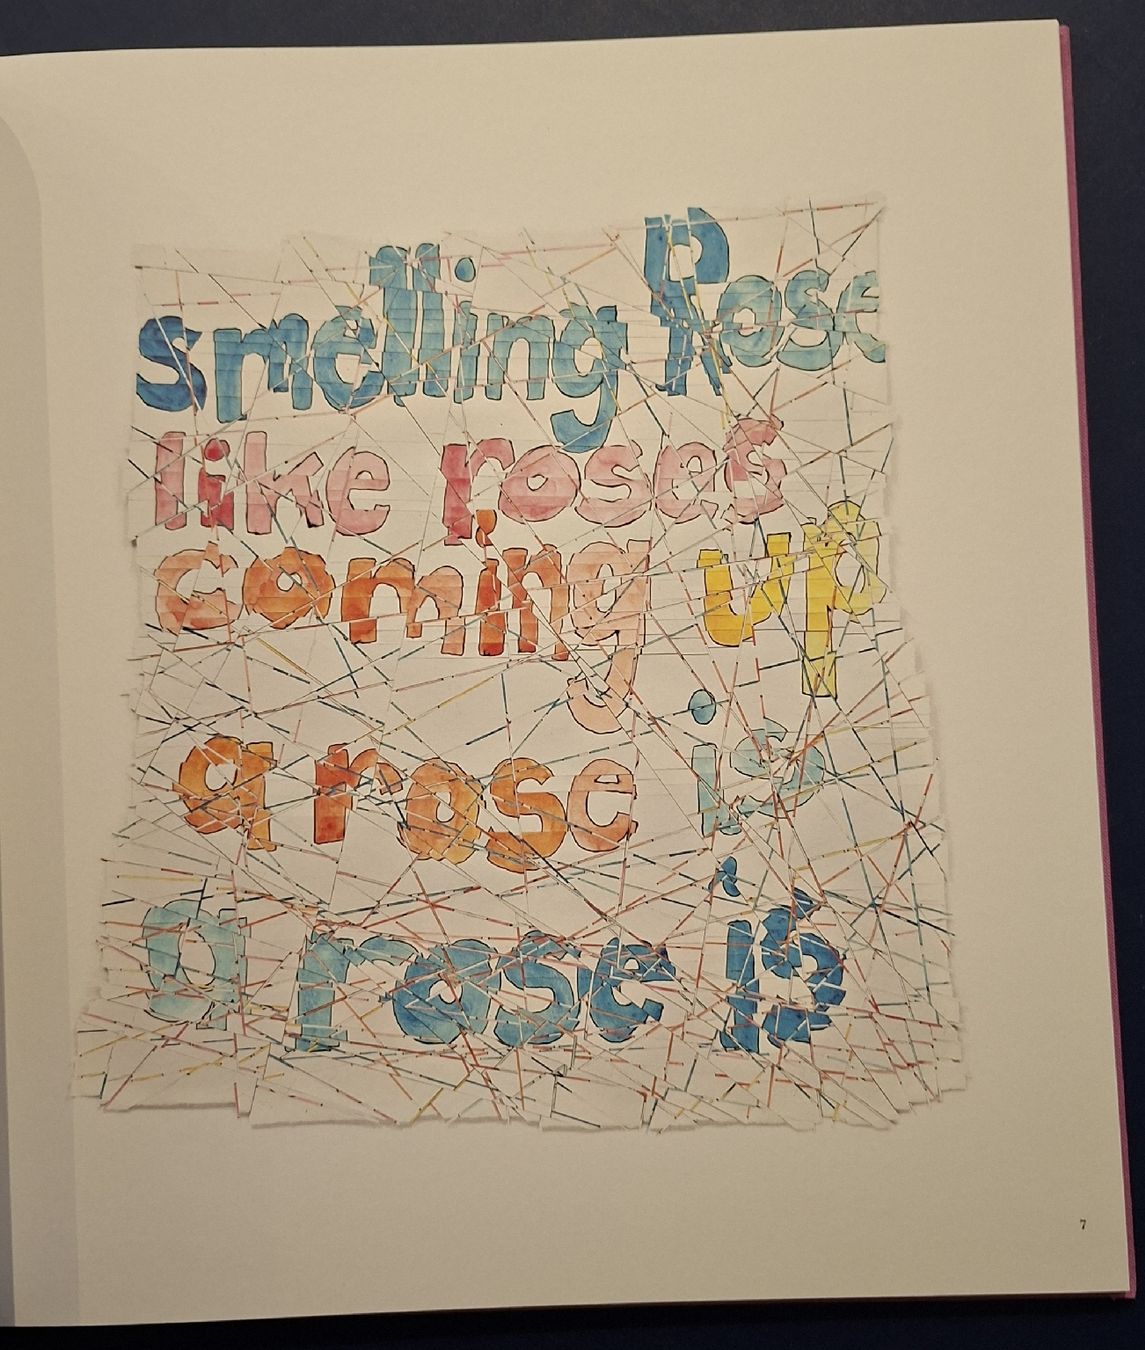 smelling Rose
like roses
coming up
a rose is
a rose is
7